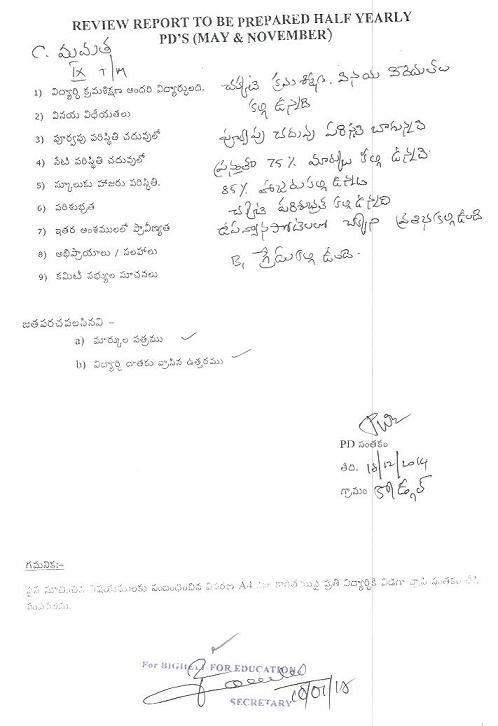 REVIEW REPORT TO BE PREPARED HALF YEARLY
PD'S (MAY & NOVEMBER)
C. మమత
IX T/M
1) విద్యార్థి క్రమశిక్షణ అందరి విద్యార్థులది. చక్కటి క్రమశిక్షణ, వినయ విధేయతలు
కల్గి ఉన్నది
2) వినయ విధేయతలు
3) పూర్వపు పరిస్థితి చదువులో పూర్వపు చదువు పరిస్థితి బాగున్నది
4) నేటి పరిస్థితి చదువులో ప్రస్తుతం 75% మార్కులు కల్గి ఉన్నది.
5) స్కూలుకు హాజరు పరిస్థితి. 85% హాజరు కల్గి ఉన్నది
6) పరిశుభ్రత చక్కటి పరిశుభ్రత కల్గి ఉన్నది
7) ఇతర అంశములలో ప్రావీణ్యత ఉపన్యాస పోటీలలో ప్రతిభ కల్గి ఉంది
8) అభిప్రాయాలు / సలహాలు B1 గ్రేడు కల్గి ఉంది.
9) కమిటీ సభ్యుల సూచనలు
జతపరచవలసినవి –
a) మార్కుల పత్రము
b) విద్యార్థి దాతకు వ్రాసిన ఉత్తరము
PD సంతకం
తేది. 18/12/2014
గ్రామం
గమనిక:-
పైన సూచించిన విషయములకు సంబంధించిన వివరణ A4 ప్రతి విద్యార్థికి విడిగా వ్రాసి సంతకం చేసి
పంపవలెను.
For BIGHELP FOR EDUCATION
SECRETARY